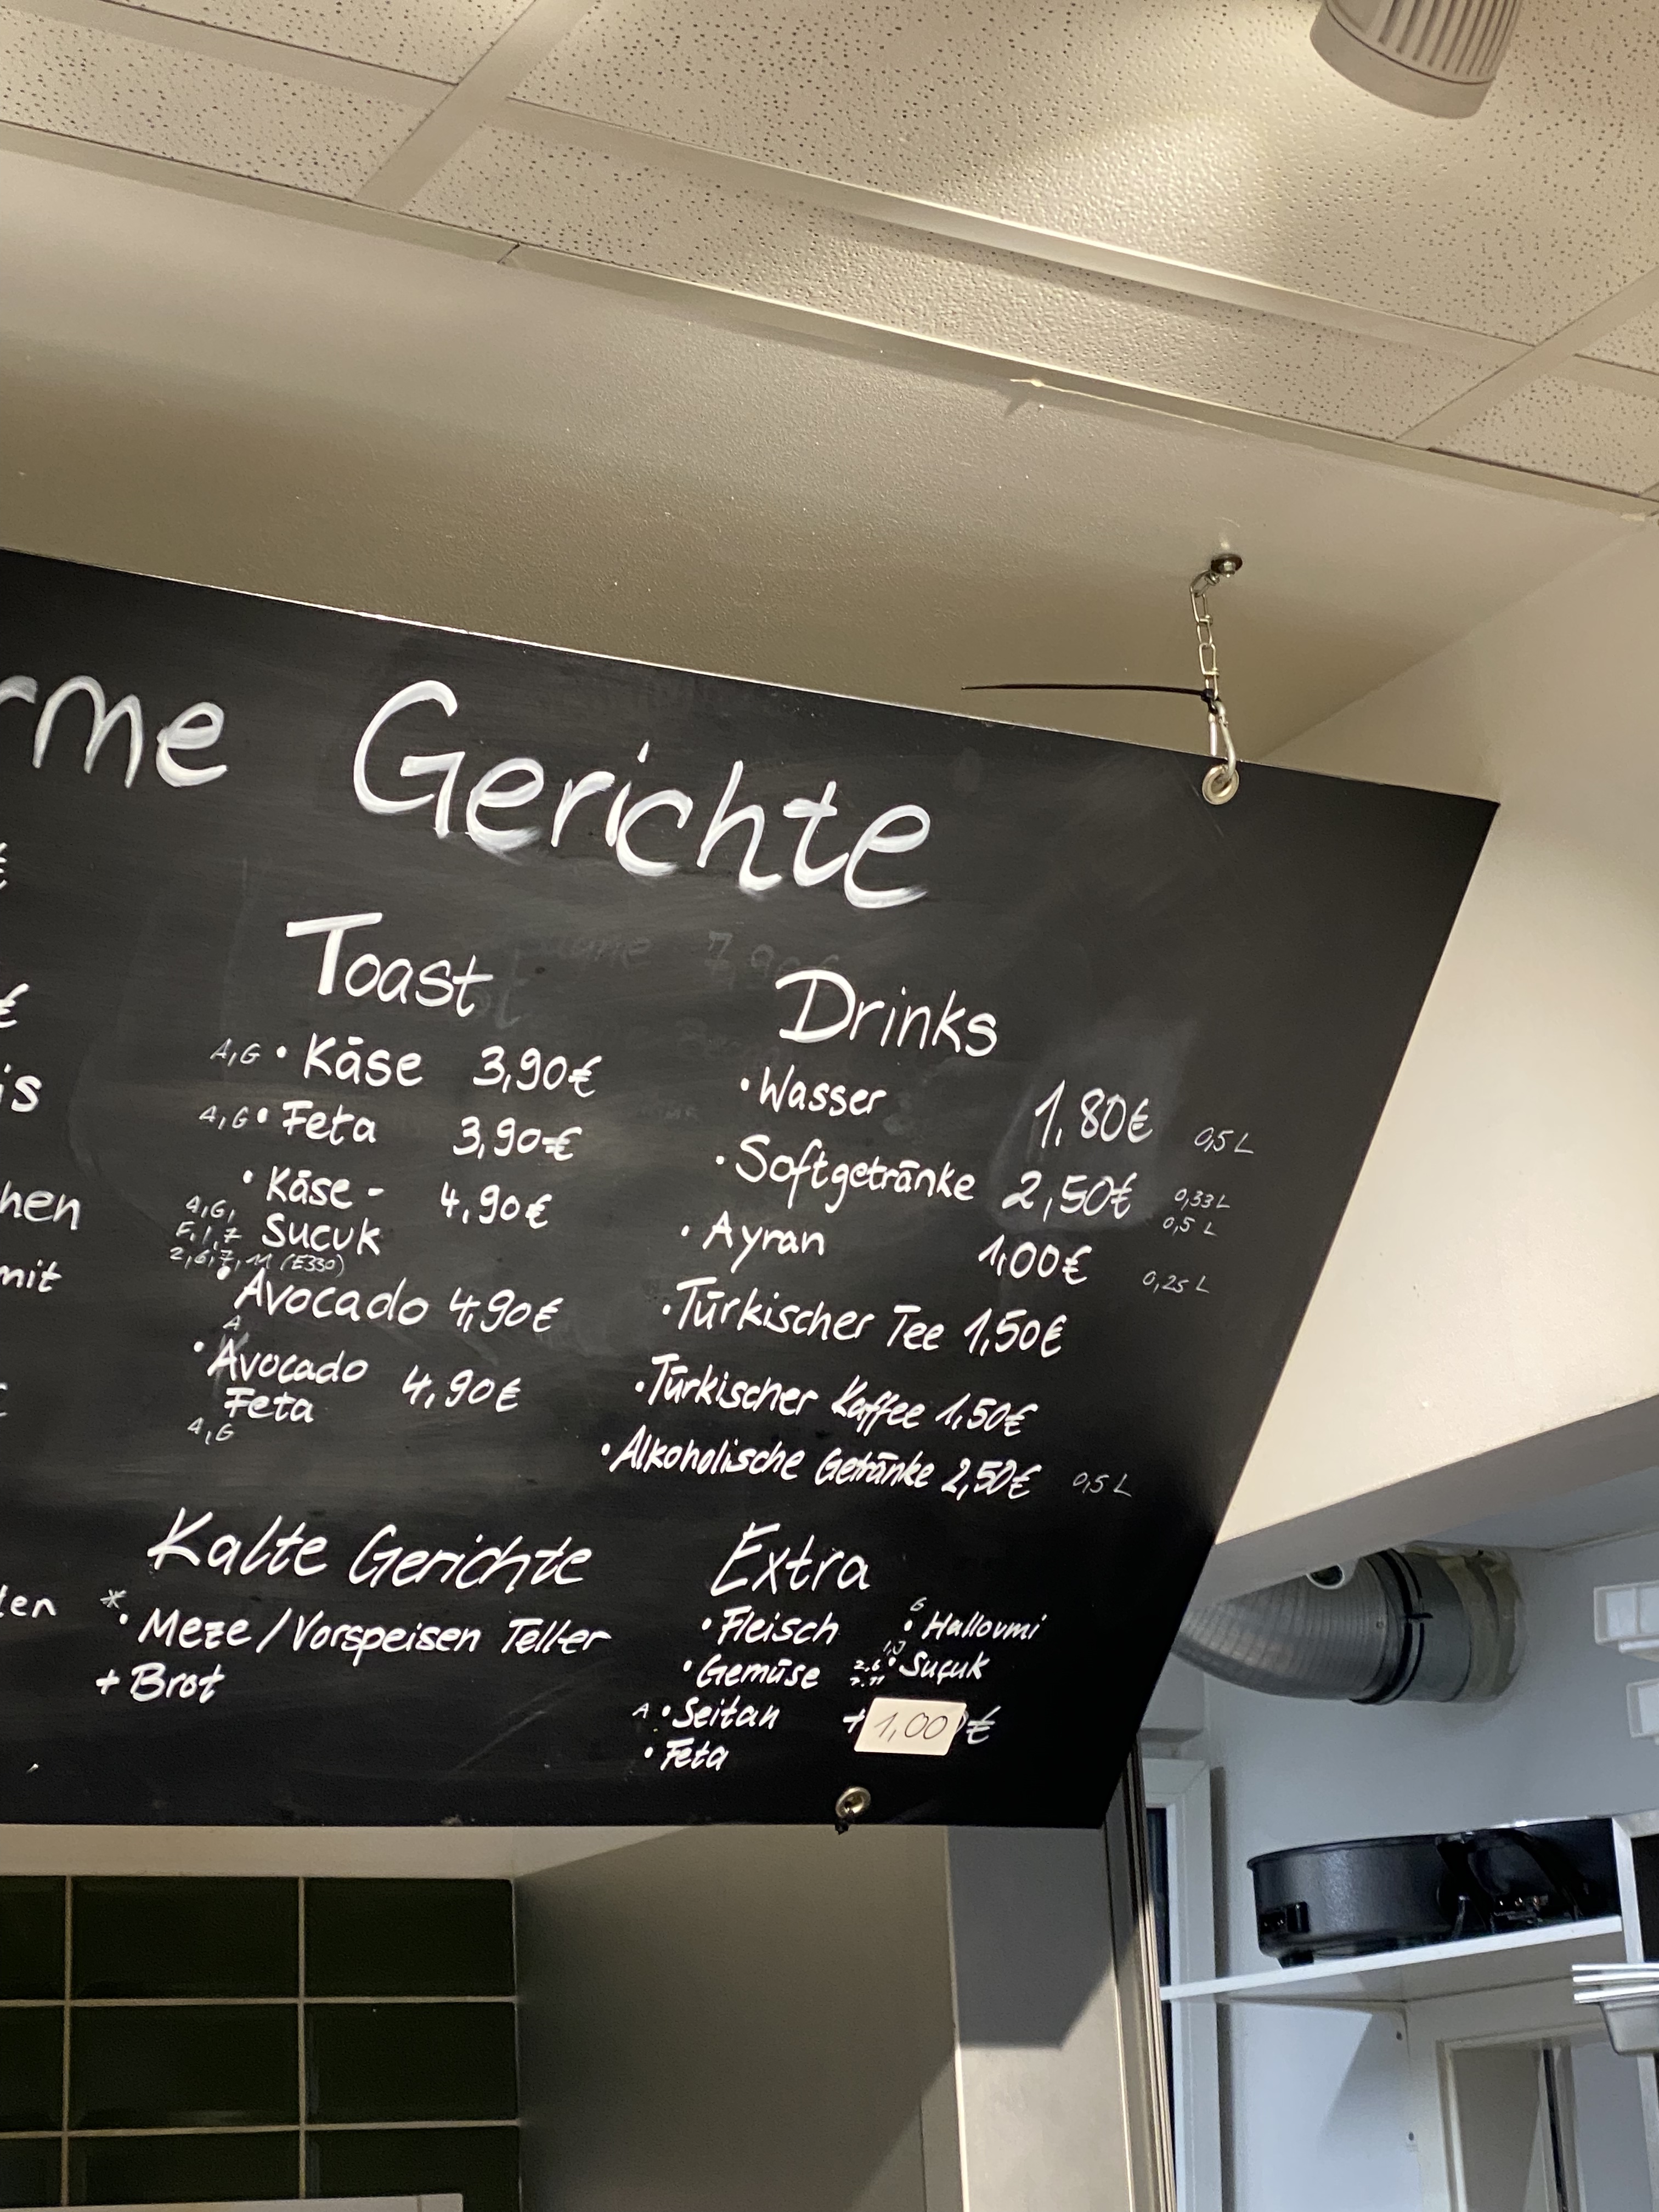 rme Gerichte
€
€
is
hen
mit
len
Toast
A,G • Käse 3,90€
A,G • Feta 3,90€
• Käse- 4,90€
A,G,
F,1,7 Sucuk
2,6,7,11 (E330)
• Avocado 4,90€
A
• Avocado 4,90€
Feta
A,G
Drinks
• Wasser 1,80€ 0,5 L
• Softgetränke 2,50€ 0,33 L
0,5 L
• Ayran 1,00€ 0,25 L
• Türkischer Tee 1,50€
• Türkischer Kaffee 1,50€
• Alkoholische Getränke 2,50€ 0,5 L
Kalte Gerichte
* • Meze / Vorspeisen Teller
+ Brot
Extra
• Fleisch
• Gemüse
A • Seitan
• Feta
• Halloumi
• Suçuk
+ 1,00 €